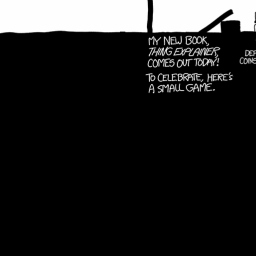 MY NEW BOOK,
THING EXPLAINER,
COMES OUT TODAY!
TO CELEBRATE, HERE'S
A SMALL GAME.